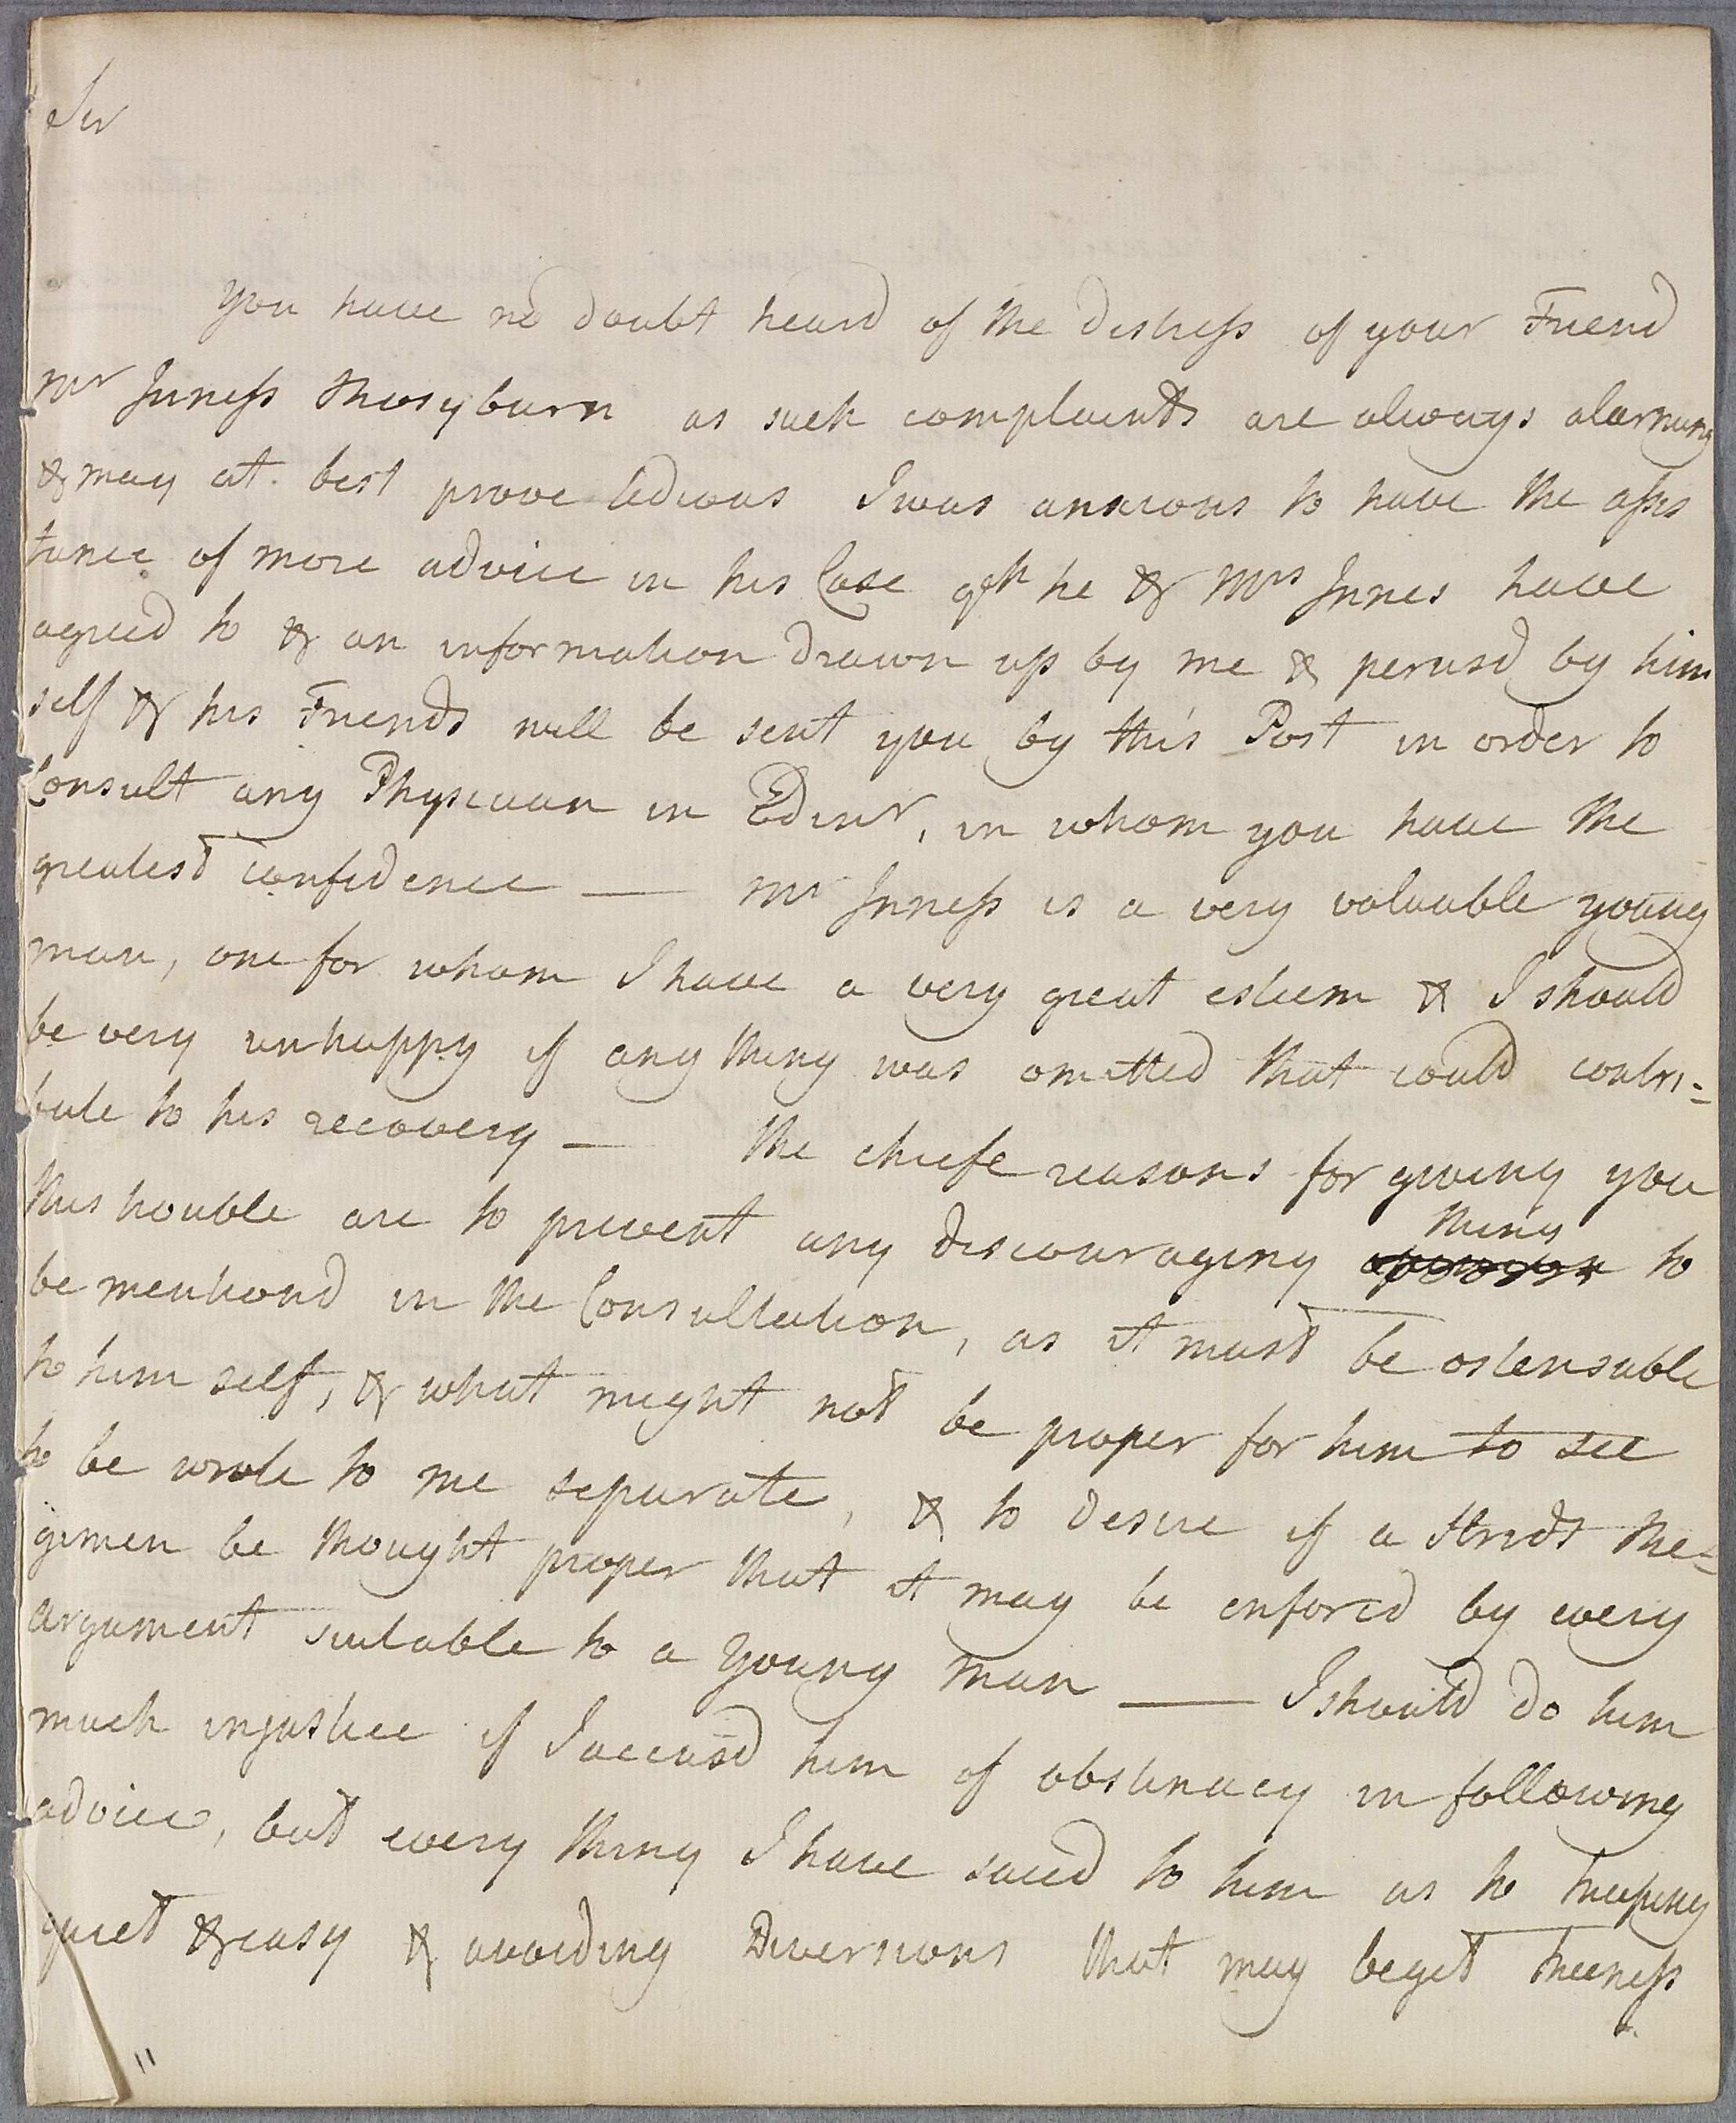 Sir
You have no doubt heard of the distress of your Friend
Mr Inness Thosyburn as such complaints are always alarming
& may at best prove tedious I was anxious to have the assis
tance of more advice in his Case qch he & Mrs Innes have
agreed to & an information drawn up by me & perusd by him
self & his Friends will be sent you by this Post in order to
Consult any Physician in Edinr, in whom you have the
greatest confidence — Mr Inness is a very valuable young
man, one for whom I have a very great esteem & I should
be very unhappy if any thing was omitted that could contri=
bute to his recovery — the chiefe reasons for giving you
this trouble are to prevent any discouraging thing to
be mentiond in the Consultation, as it must be ostensable
to him self, & what might not be proper for him to see
to be wrote to me separate, & to desire if a strict Re=
gimen be thought proper that it may be enforcd by every
argument suitable to a Young man — I should do him
much injustice if I accusd him of obstinacy in following
advice, but every thing I have saied to him as to keeping
quiet & easy & avoiding Diversions that may beget keeness